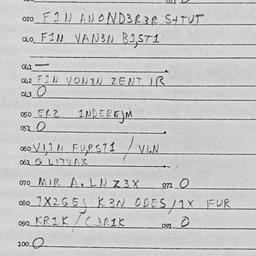 020 FIN ANOND3R3R S4TUT
040. FIN VAN3N BI,ST1
041 —
042 FIN VON3N ZENT IR
043 O
050 ERZ INDEREJM
051 O
060 VIJN FURST1 / VIN
061 O LITVAK
070 MIR A. LN Z3X 071 O
080 1X2GEJ K3N ODES/1X FUR
090 KR1K / C3R1K 091 O
100 O